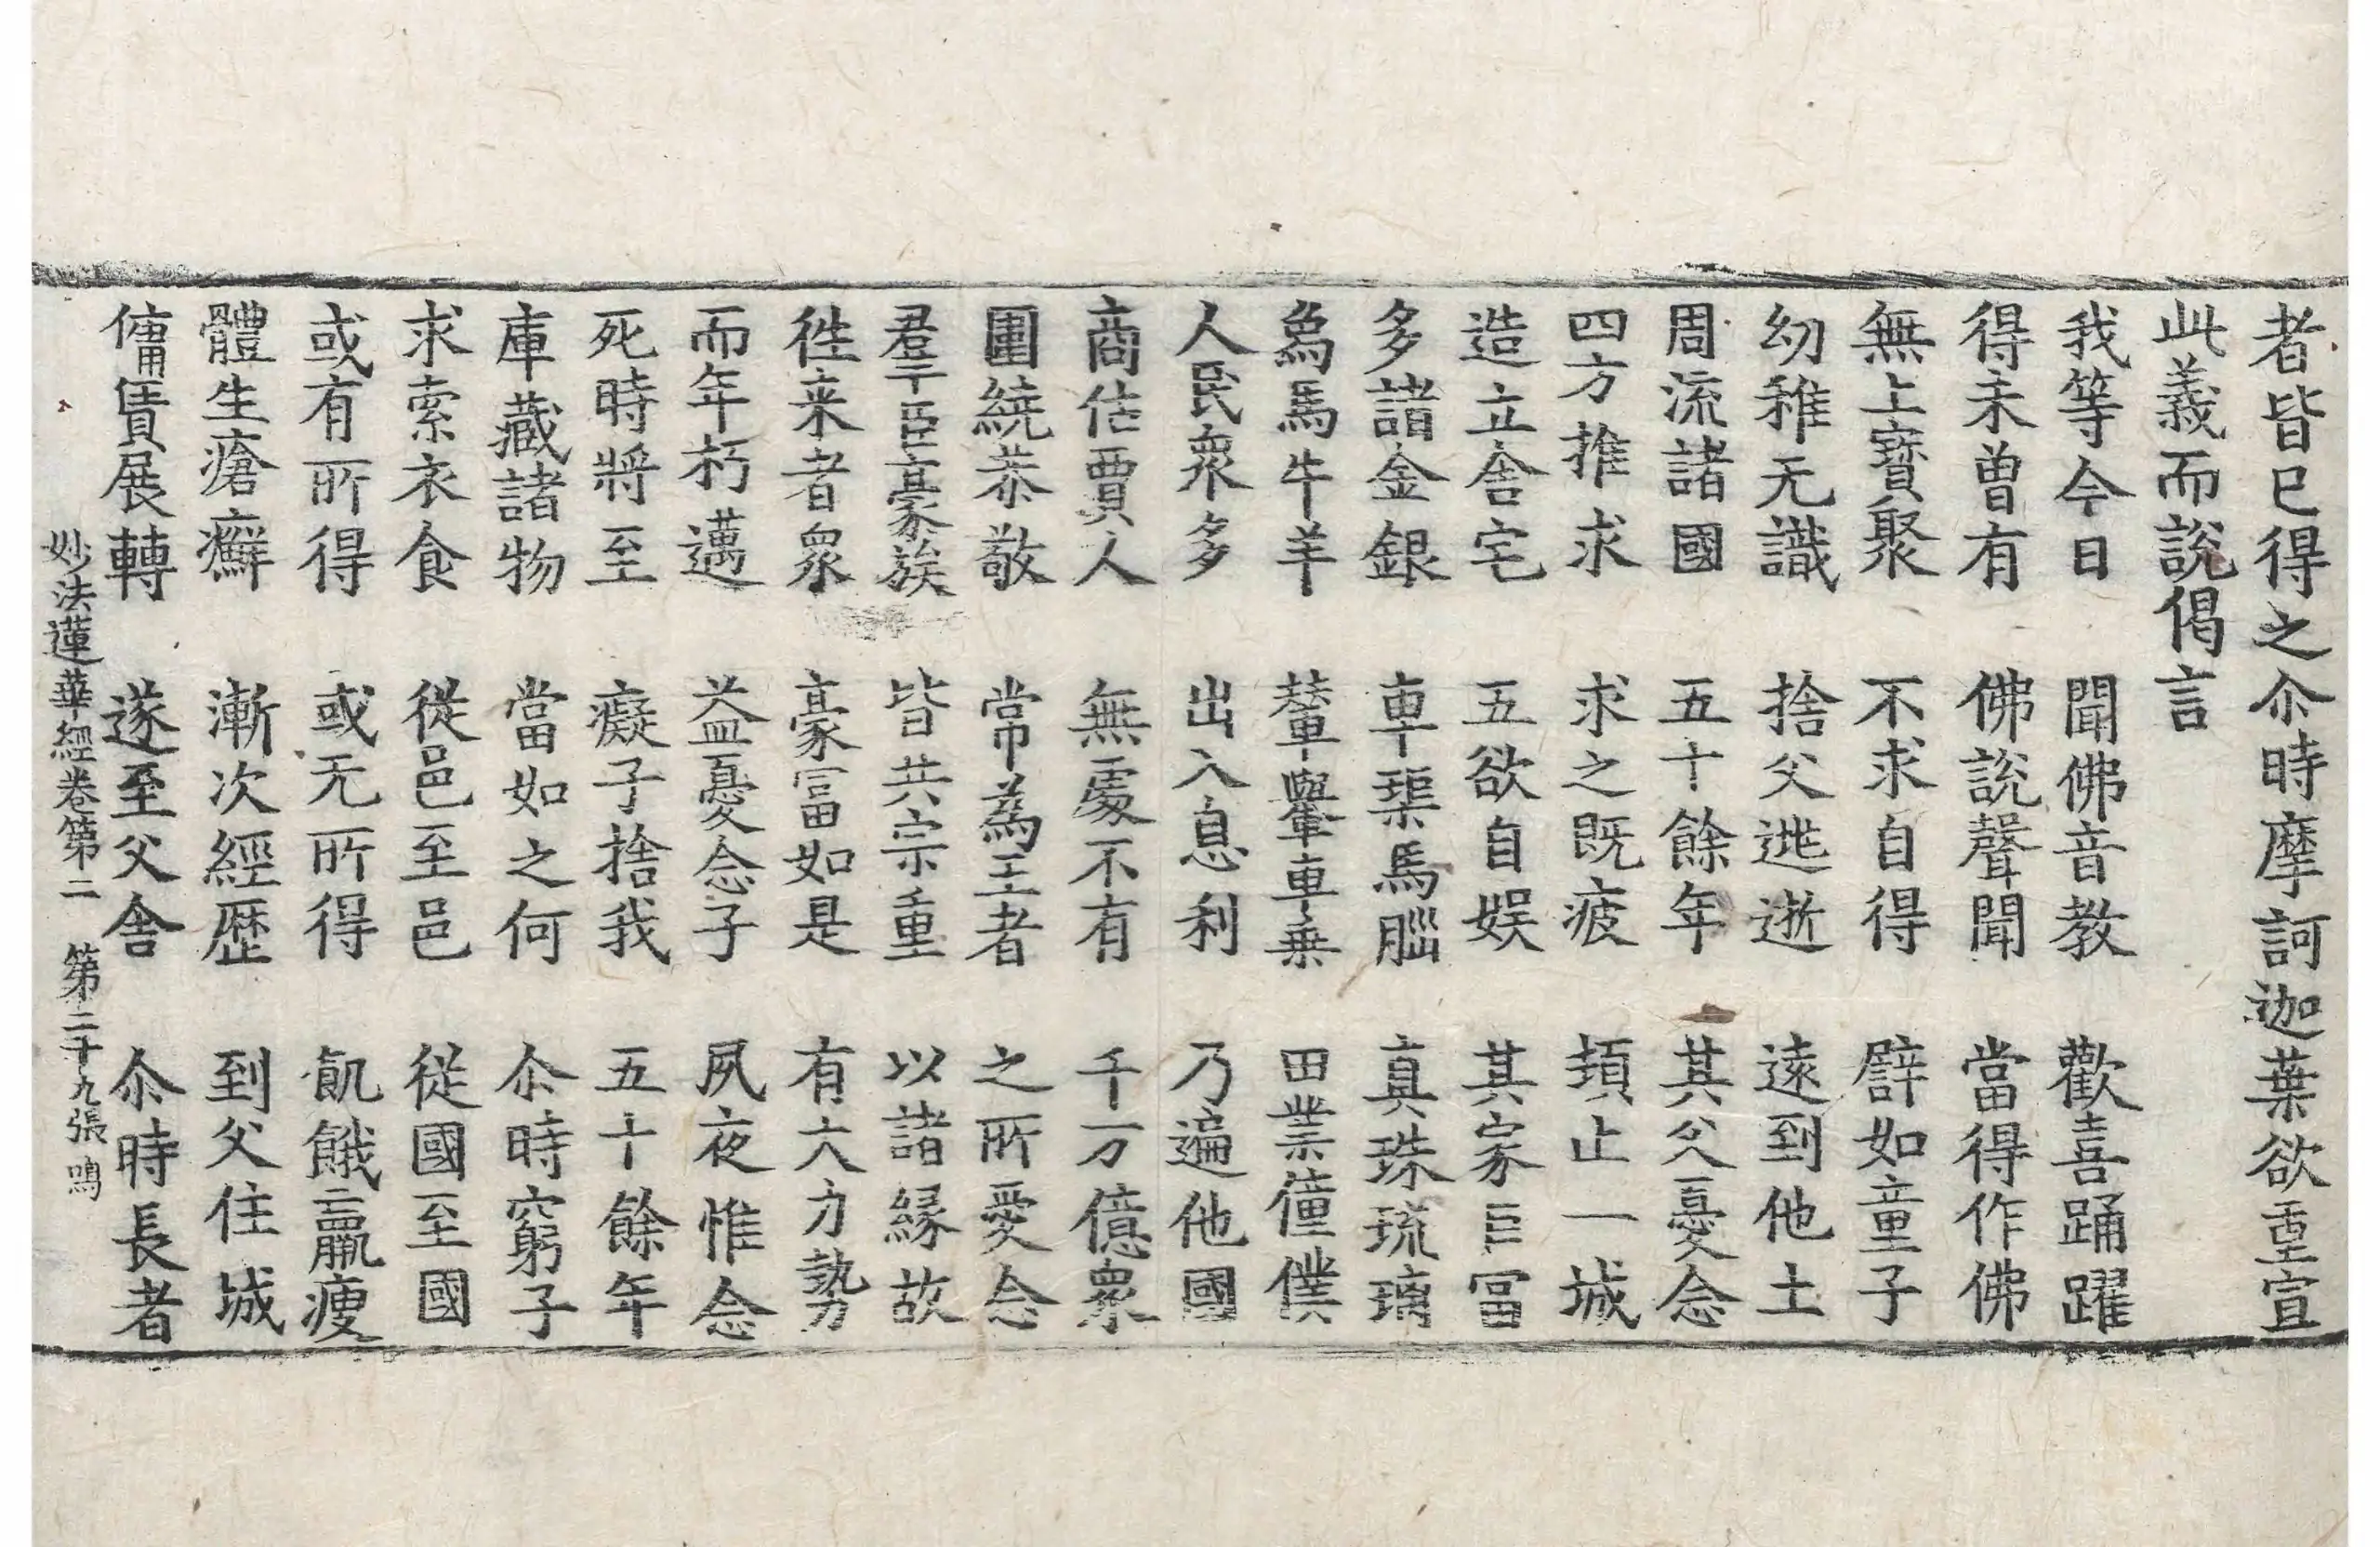 者皆已得之尒時摩訶迦葉欲重宣
此義而說偈言
我等今日　聞佛音教　歡喜踊躍
得未曾有　佛說聲聞　當得作佛
無上寶聚　不求自得　譬如童子
幼稚无識　捨父逃逝　遠到他土
周流諸國　五十餘年　其父憂念
四方推求　求之既疲　頓止一城
造立舍宅　五欲自娛　其家巨冨
多諸金銀　車𤦲馬腦　真珠琉璃
爲馬牛羊　輦轝車乗　田業僮僕
人民衆多　出入息利　乃遍他國
商估賈人　無處不有　千万億衆
圍繞恭敬　常為王者　之所愛念
羣臣豪族　皆共宗重　以諸緣故
徃来者衆　豪冨如是　有大力勢
而年朽邁　益憂念子　夙夜惟念
死時將至　癡子捨我　五十餘年
庫藏諸物　當如之何　尒時窮子
求索衣食　從邑至邑　從國至國
或有所得　或无所得　飢餓羸瘦
體生瘡癬　漸次經歷　到父住城
傭賃展轉　遂至父舍　尒時長者
妙法蓮華經卷第二　第二十九張　鳴